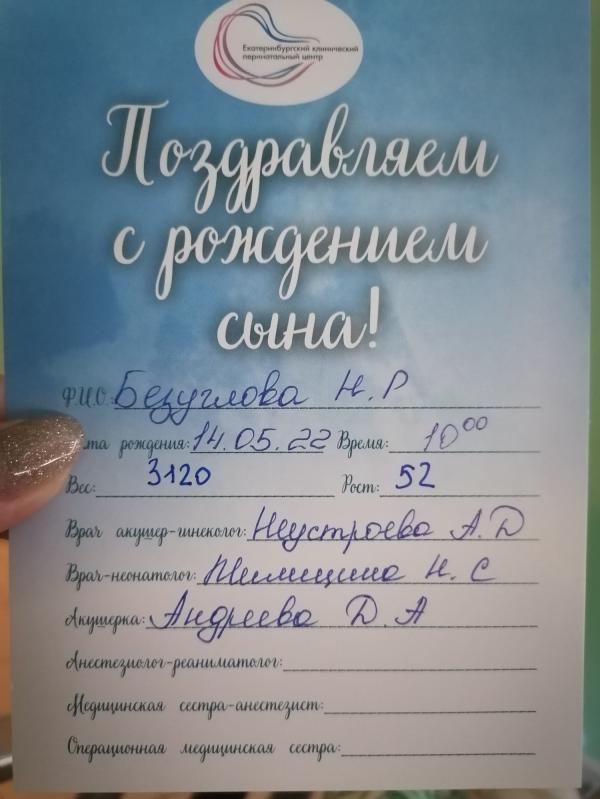 Екатеринбургский клинический
перинатальный центр
Поздравляем
с рождением
сына!
Ф.И.О. Безуглова Н.Р
Дата рождения: 14.05.22 Время: 10 00
Вес: 3120 Рост: 52
Врач акушер-гинеколог: Неустроева А.Д
Врач-неонатолог: Н. С
Акушерка: Андреева Д.А
Анестезиолог-реаниматолог:
Медицинская сестра-анестезист:
Операционная медицинская сестра: